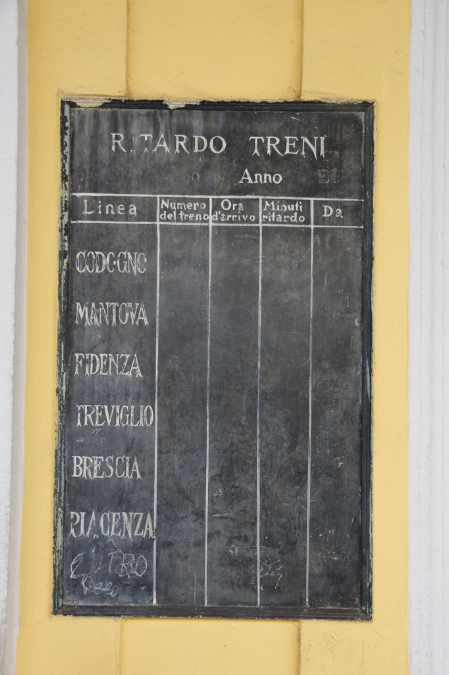 RITARDO TRENI
Anno
Linea Numero del treno Ora d'arrivo Minuti ritardo Da
CODOGNO
MANTOVA
FIDENZA
TREVIGLIO
BRESCIA
PIACENZA